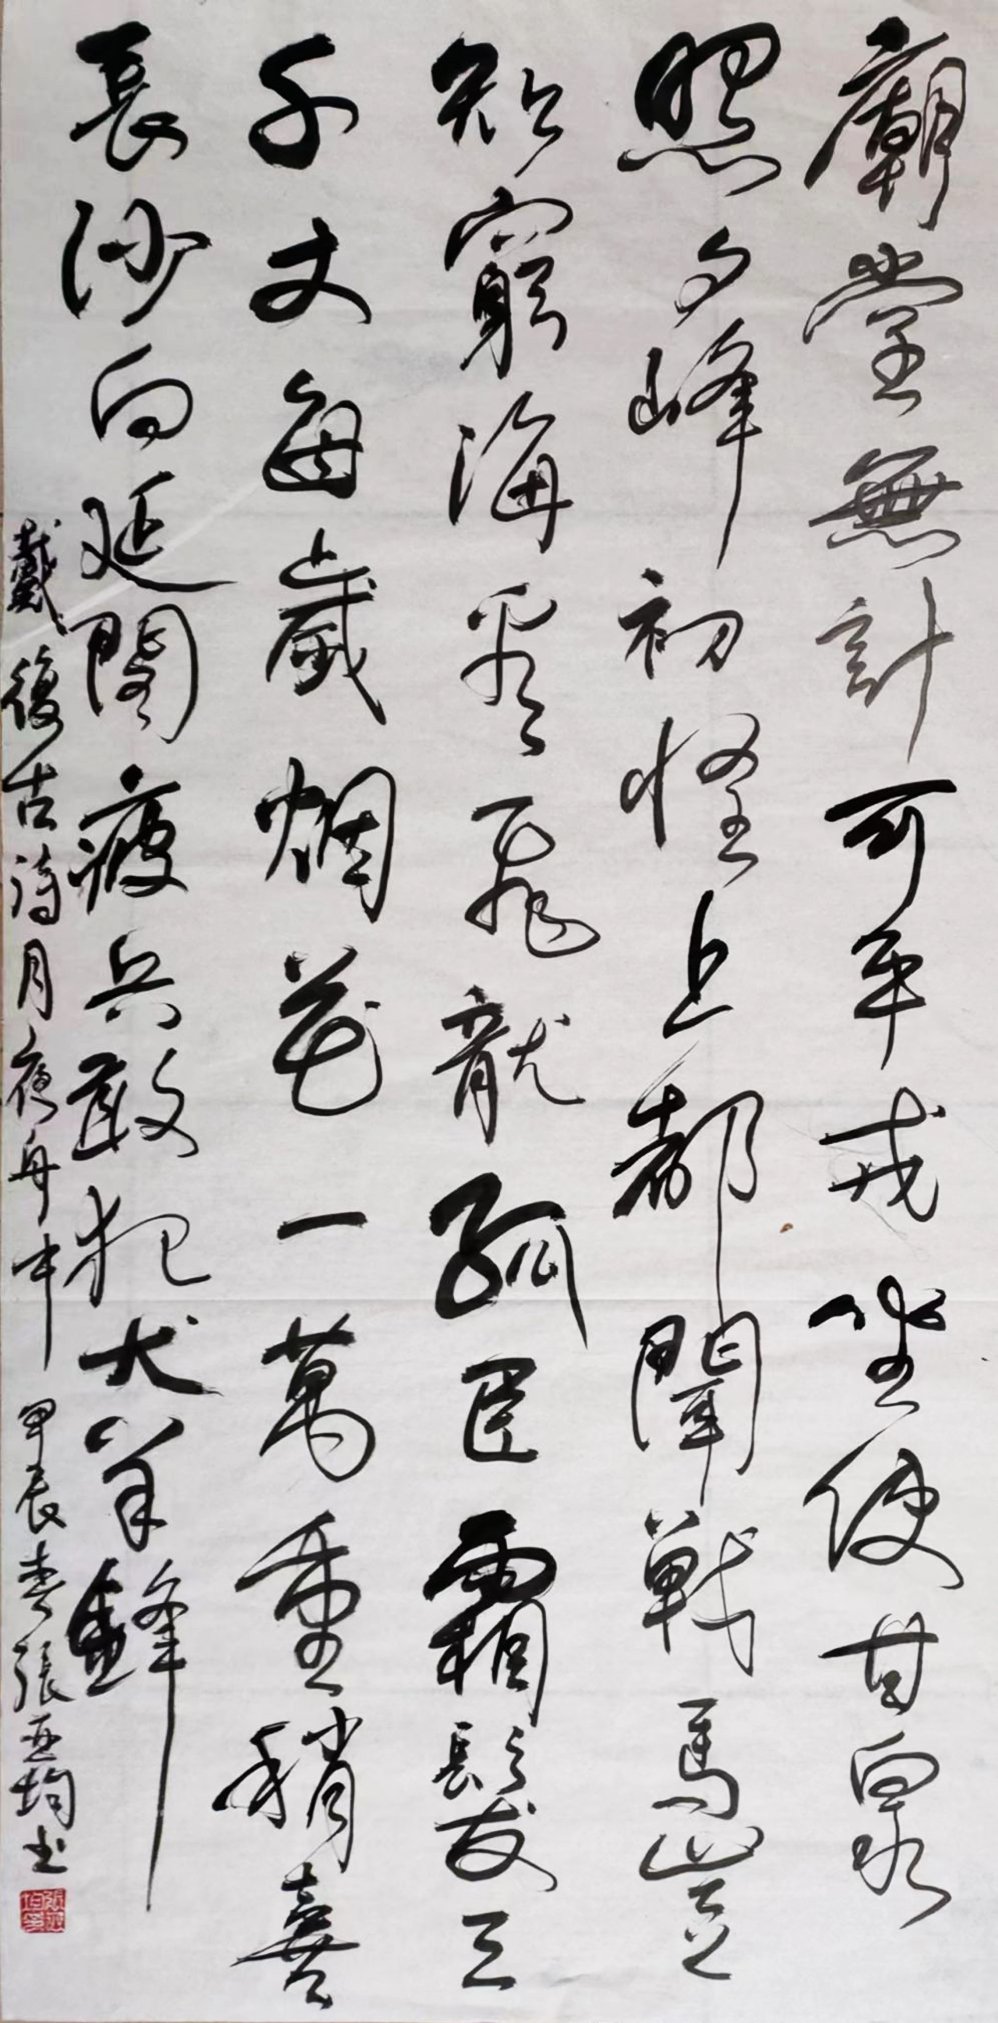 廟堂無計可平戎坐使甘泉
照夕峰初怪上都聞戰馬豈
知窮海看飛龍孤臣霜髮三
千丈每歲烟花一萬重稍喜
長沙向延閣疲兵敢犯犬羊鋒
戴復古詩月夜舟中 甲辰春張亚均书